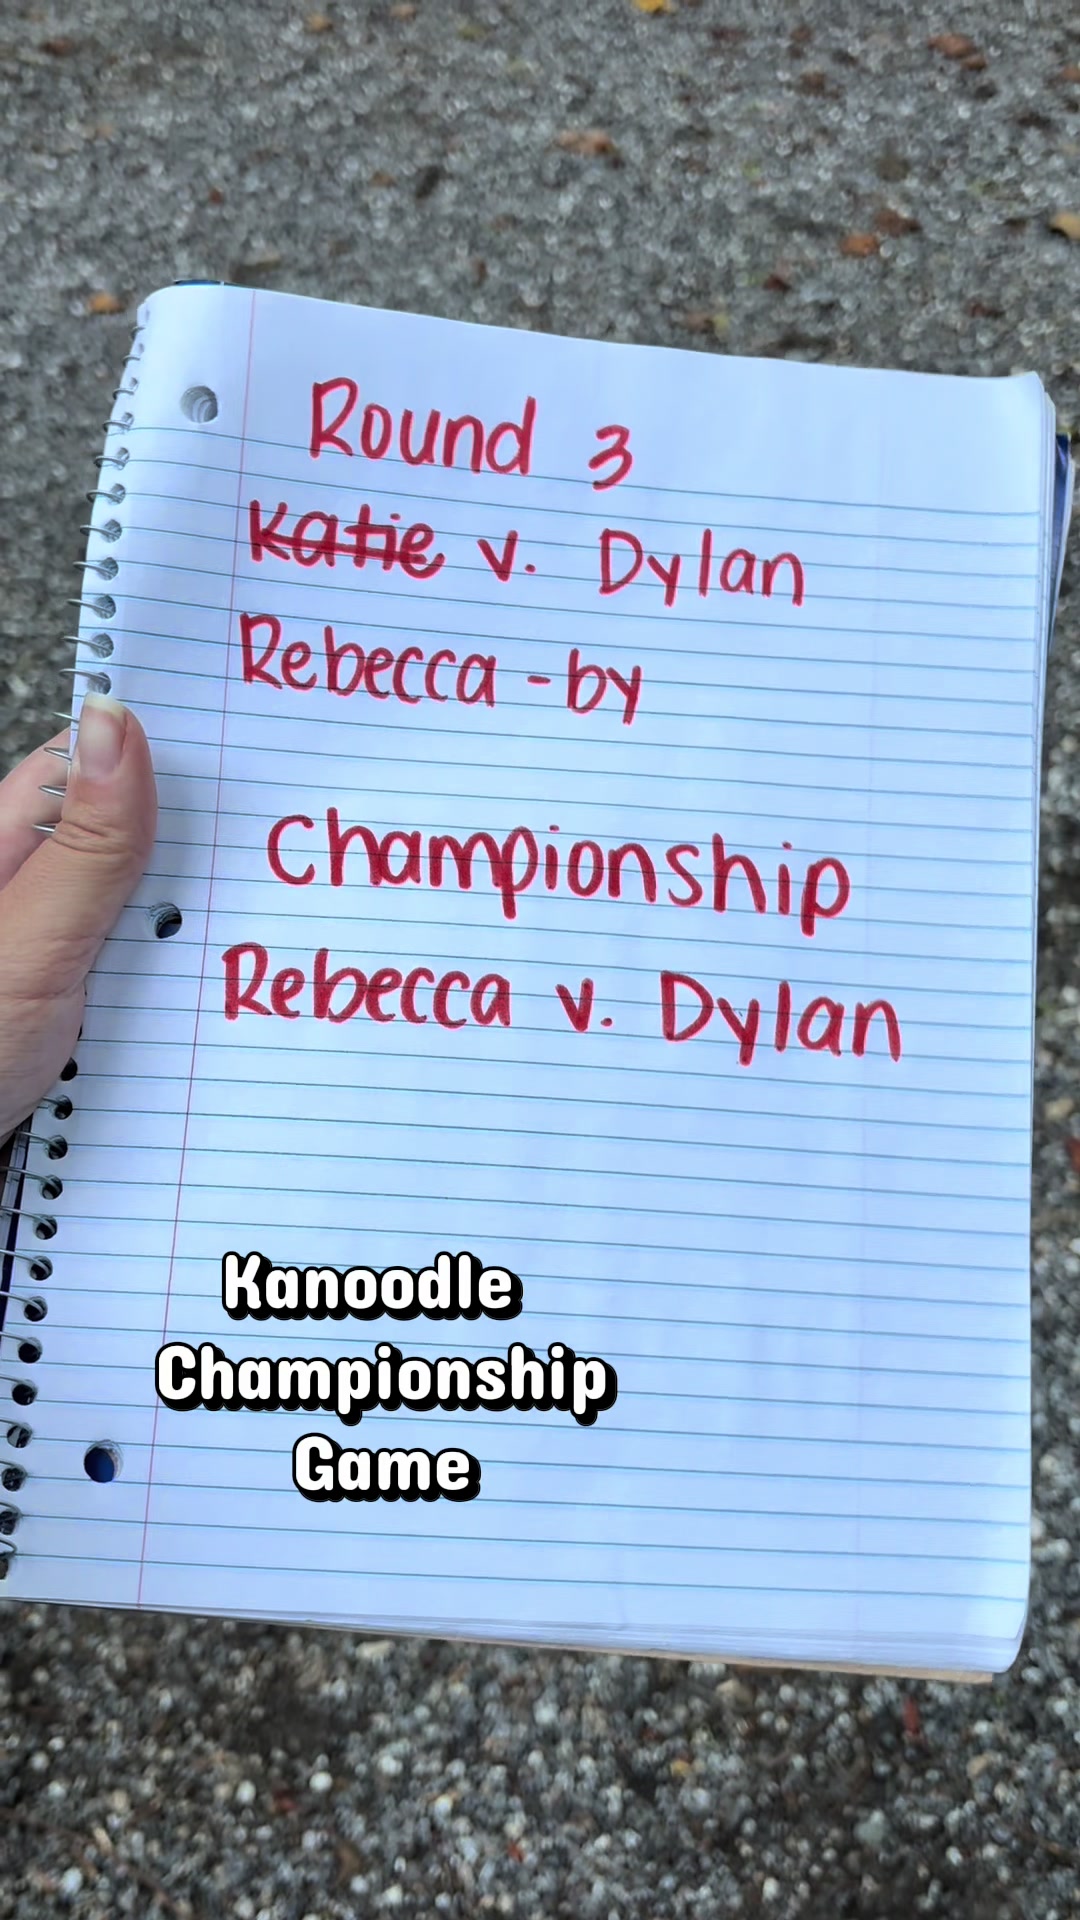 Round 3
Katie v. Dylan
Rebecca - by
Championship
Rebecca v. Dylan
Kanoodle
Championship
Game